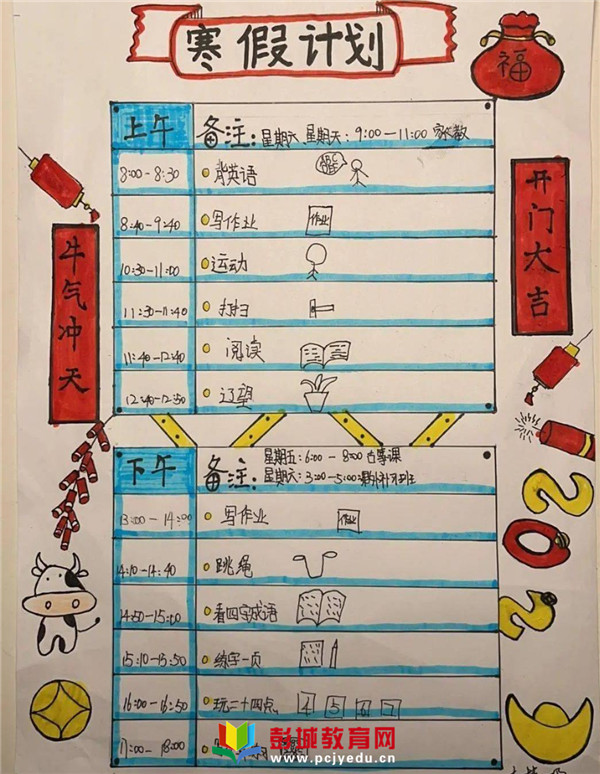 寒假计划
福
上午 备注：星期六 星期天：9:00-11:00
8:00-8:30 背英语
8:40-9:40 写作业 作业
10:30-11:00 运动
11:30-11:40 打扫
11:40-12:40 阅读
12:40-12:50 辽望
牛气冲天
开门大吉
下午 备注：星期五：6:00-8:00古筝课
星期六：3:00-5:00课外补习班
13:00-14:00 写作业 作业
14:10-14:40 跳绳
14:50-15:00 看四字成语
15:10-15:50 练字一页
16:00-16:50 玩二十四点 4 5 6 7
17:00-18:00
2021
彭城教育网
www.pcjyedu.cn